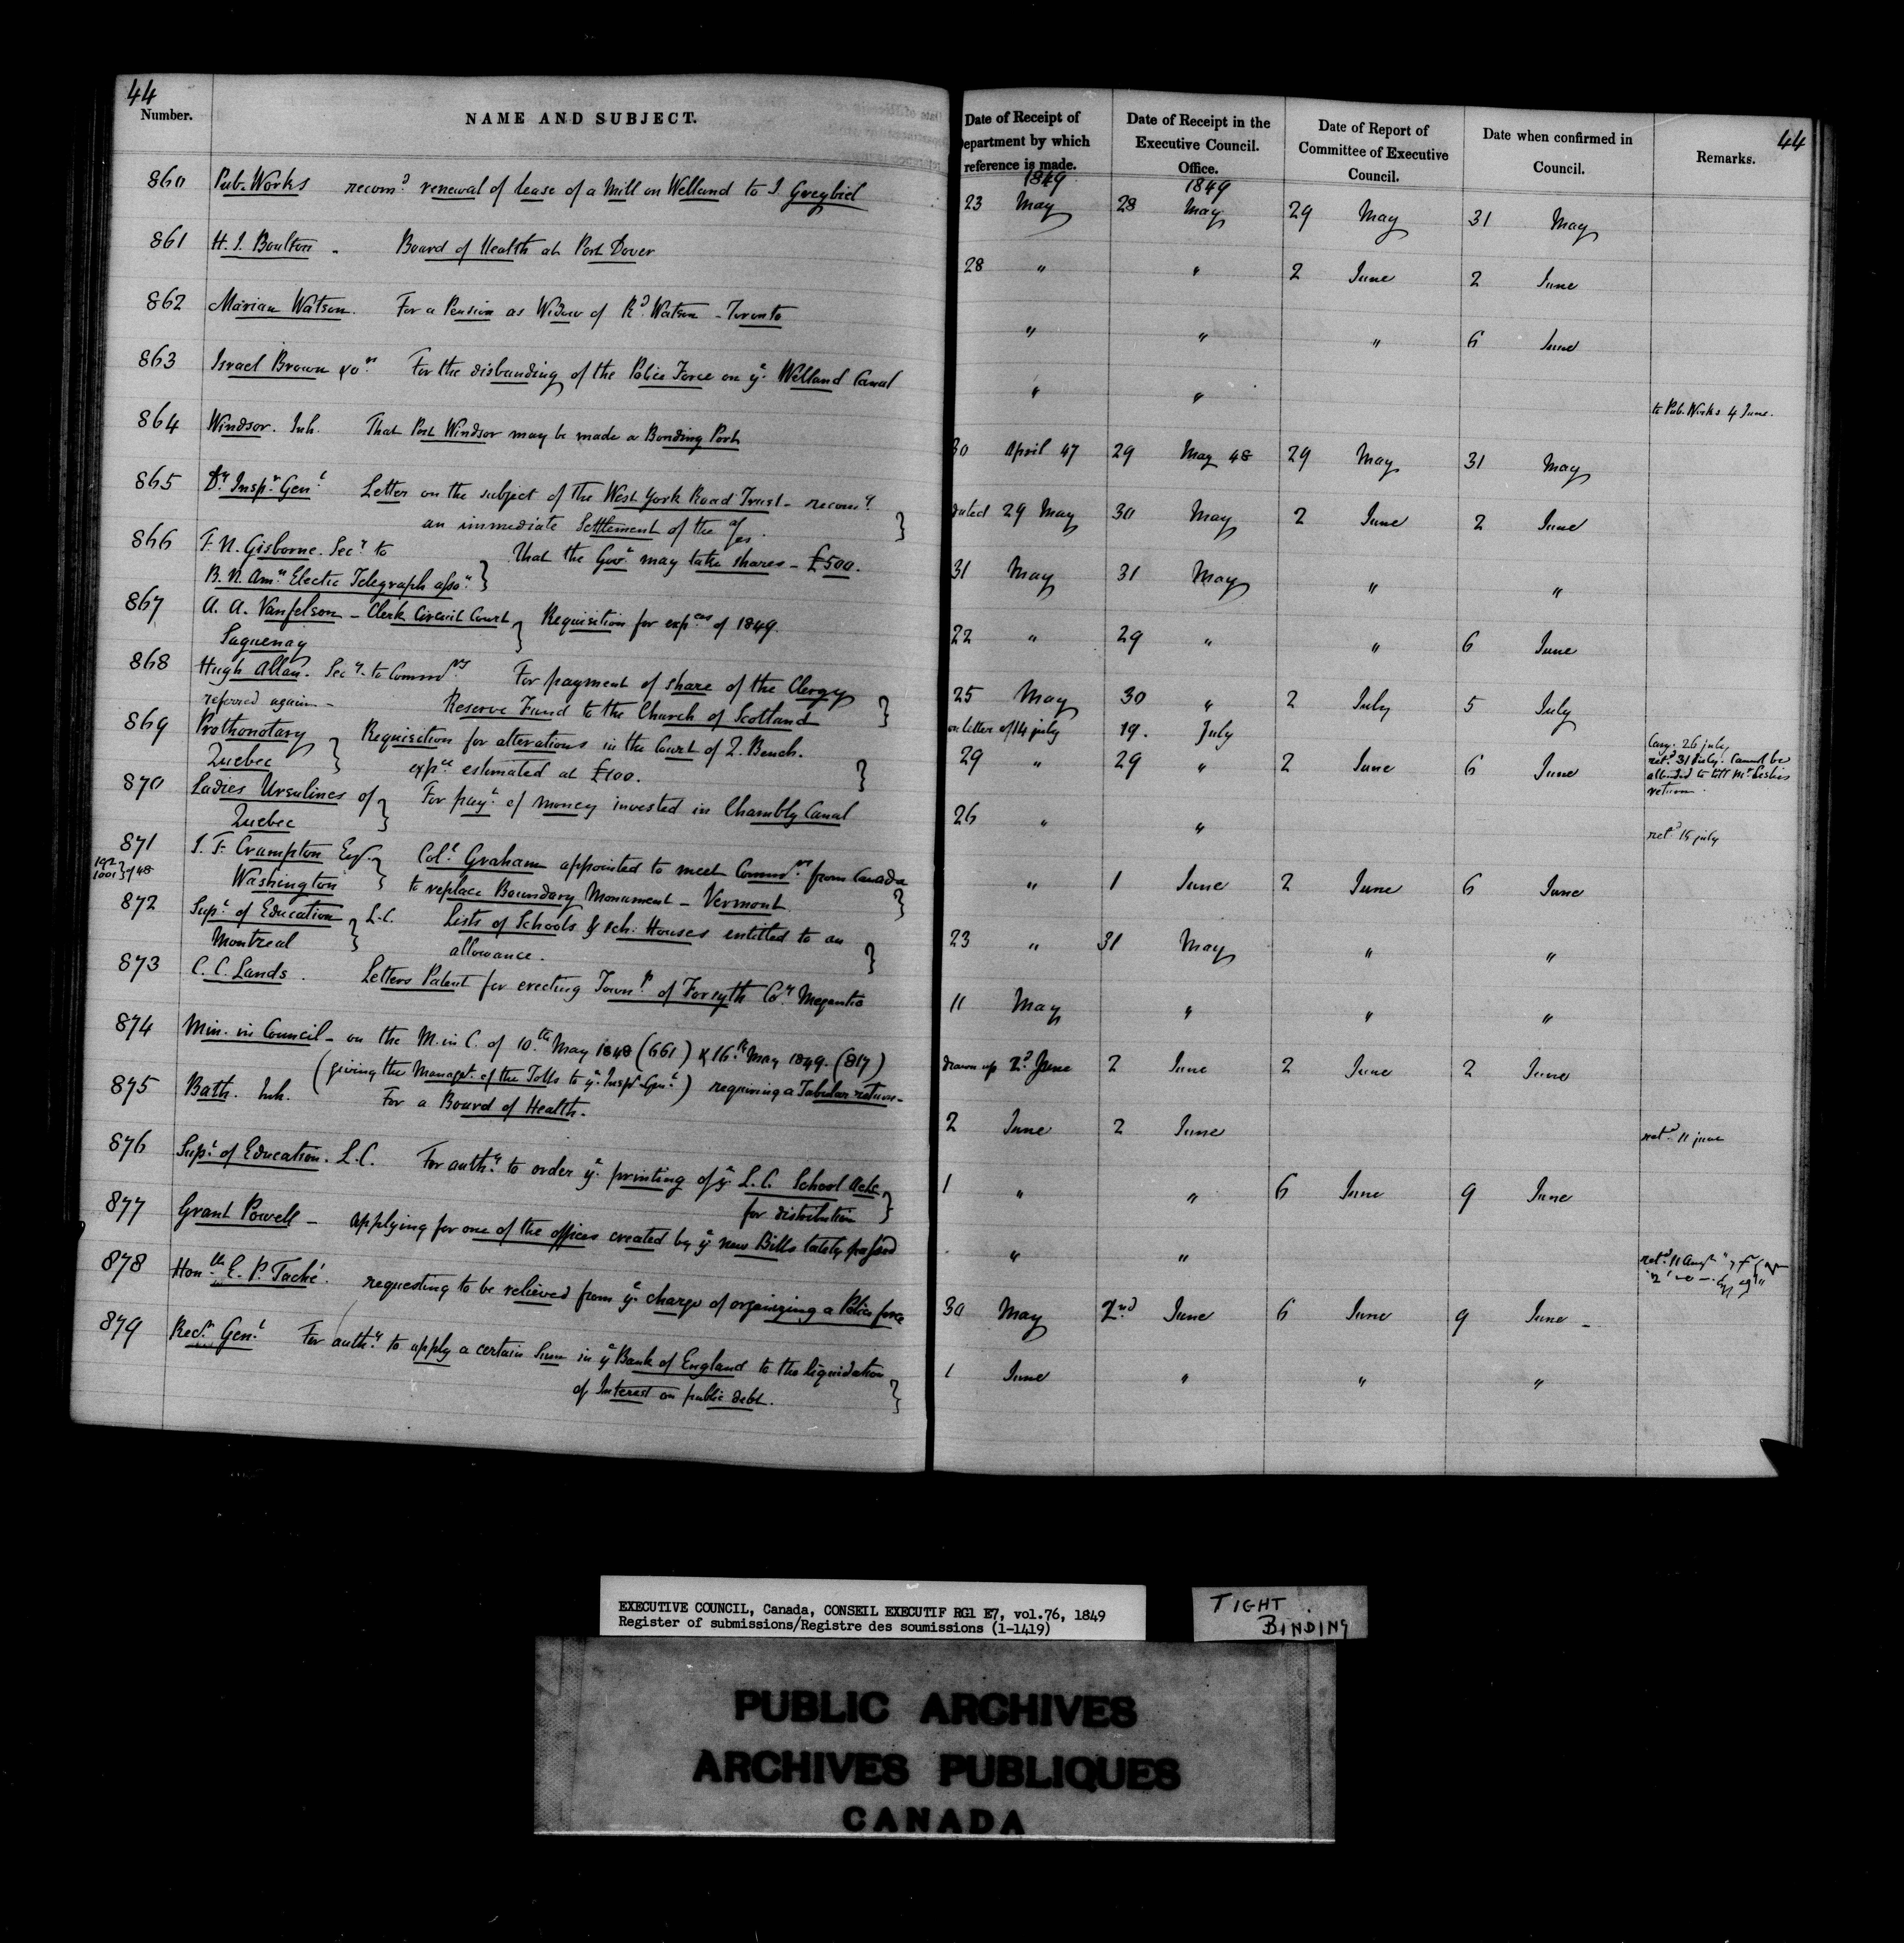 44
Number.
NAME AND SUBJECT.
Date of Receipt of
Department by which
reference is made.
Date of Receipt in the
Executive Council.
Office.
Date of Report of
Committee of Executive
Council.
Date when confirmed in
Council.
Remarks.
44
1849
1849
860 Pub. Works recomd renewal of lease of a Mill on Welland to J. Greybiel 23 May 28 May 29 May 31 May
861 H. J. Boulton - Board of Health at Port Dover 28 " " 2 June 2 June
862 Marian Watson. For a Pension as Widow of Rd. Watson - Toronto " " " 6 June
863 Israel Brown & ors. For the disbanding of the Police Force on ye. Welland Canal " " to Pub. Works 4 June.
864 Windsor. Inh. That Port Windsor may be made a Bonding Port 30 April 47 29 May 48 29 May 31 May
865 Dy. Inspr. Genl. Letter on the subject of the West York Road Trust - recomg dated 29 May 30 May 2 June 2 June
an immediate Settlement of the afs. }
866 F. N. Gisborne. Secy. to That the Govt. may take shares - £500. 31 May 31 May " "
B. N. Amn. Electic Telegraph asson. }
867 A. A. Vanfelson - Clerk Circuit Court } Requisition for expces of 1849. 22 " 29 " " 6 June
Saguenay
868 Hugh Allan. Secy. to Commrs. For payment of share of the Clergy 25 May 30 " 2 July 5 July
referred again - Reserve Fund to the Church of Scotland } on letter of 14 july 19. July
869 Prothonotary } Requisition for alterations in the Court of Q. Bench. 29 " 29 " 2 June 6 June
Cary. 26 july
retd. 31 July. Cannot be
attended to till Mr Leslies
return.
Quebec expce estimated at £100. }
870 Ladies Ursulines of } For payt. of money invested in Chambly Canal 26 " " retd. 15 july
Quebec
871 J. F. Crampton Esqr. } Coll. Graham appointed to meet Commrs. from Canada " 1 June 2 June 6 June
1001 } of 48 Washington to replace Boundary Monument - Vermont. }
872 Supt. of Education } L.C. Lists of Schools & sch. Houses entitled to an 23 " 31 May " "
Montreal allowance. }
873 C. C. Lands. Letters Patent for erecting Townp. of Forsyth Coy. Megantic 11 May " " "
874 Min. in Council - on the M. in C. of 10.th May 1848 (661) & 16.th May 1849. (817) drawn up 2d June 2 June 2 June 2 June
(giving the Managt. of the Tolls to ye. Inspr. Genl.) requiring a Tabular return -
875 Bath. Inh. For a Board of Health. 2 June 2 June retd. 11 june
876 Supt. of Education. L.C. For authy. to order ye. printing of ye. L.C. School Acts 1 " " 6 June 9 June
for distribution }
877 Grant Powell - applying for one of the offices created by ye new Bills lately passed " " retd. 11 Augt
878 Honble E. P. Taché. requesting to be relieved from ye. charge of organizing a Police force 30 May 2nd June 6 June 9 June -
879 Recr. Genl. For authy. to apply a certain Sum in ye Bank of England to the liquidation 1 June " " "
of Interest on public debt. }
EXECUTIVE COUNCIL, Canada, CONSEIL EXECUTIF RG1 E7, vol.76, 1849
Register of submissions/Registre des soumissions (1-1419)
TIGHT
BINDING
PUBLIC ARCHIVES
ARCHIVES PUBLIQUES
CANADA